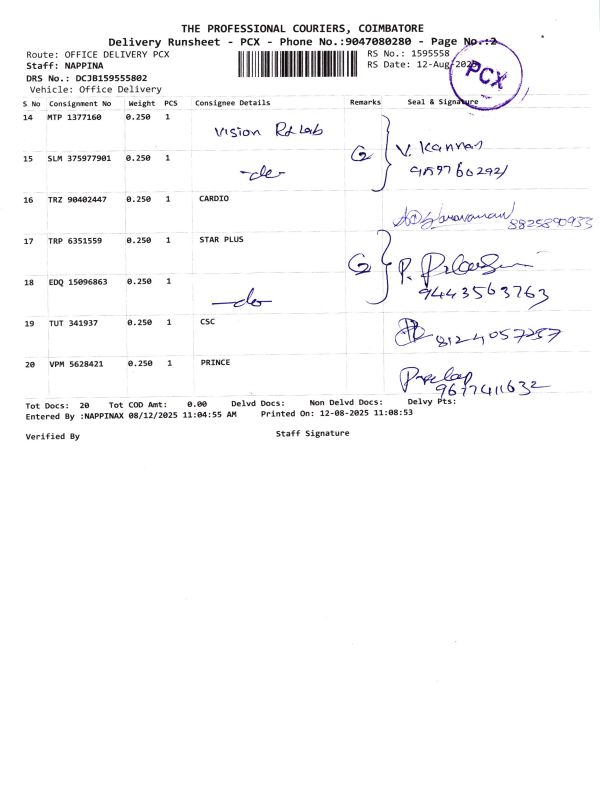 THE PROFESSIONAL COURIERS, COIMBATORE
Delivery Runsheet - PCX - Phone No.:9047080280 - Page No.:2
Route: OFFICE DELIVERY PCX
RS No.: 1595558
Staff: NAPPINA
RS Date: 12-Aug-2025
PCX
DRS No.: DCJB159555802
Vehicle: Office Delivery
S No Consignment No Weight PCS Consignee Details Remarks Seal & Signature
14 MTP 1377160 0.250 1 Vision Rd Lab
V. Kannan
15 SLM 375977901 0.250 1 -do-
2
16 TRZ 90402447 0.250 1 CARDIO
8825890933
17 TRP 6351559 0.250 1 STAR PLUS
2 P.
18 EDQ 15096863 0.250 1 -do-
9443563763
19 TUT 341937 0.250 1 CSC
8124057257
20 VPM 5628421 0.250 1 PRINCE
9677411632
Tot Docs: 20 Tot COD Amt: 0.00 Delvd Docs: Non Delvd Docs: Delvy Pts:
Entered By :NAPPINAX 08/12/2025 11:04:55 AM Printed On: 12-08-2025 11:08:53
Verified By Staff Signature